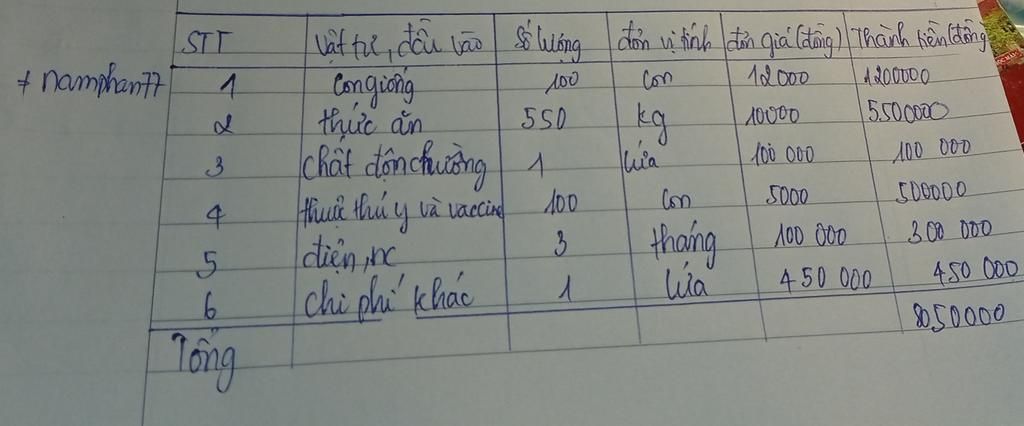 STT vật tư, đầu vào Số lượng đơn vị tính đơn giá (đồng) Thành tiền (đồng)
+ namphan77 1 con giống 100 con 12000 1200000
2 thức ăn 550 kg 10000 5500000
3 chất độn chuồng 1 lứa 100 000 100 000
4 thuốc thú y và vaccine 100 con 5000 500000
5 điện, nc 3 tháng 100 000 300 000
6 chi phí khác 1 lứa 450 000 450 000
Tổng 8050000